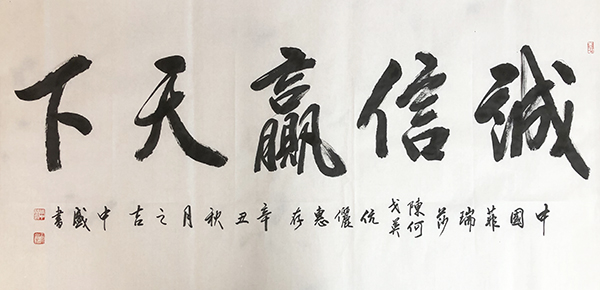 誠信贏天下
中國菲瑞莎陳何戈英伉儷惠存辛丑秋月之吉中盛書